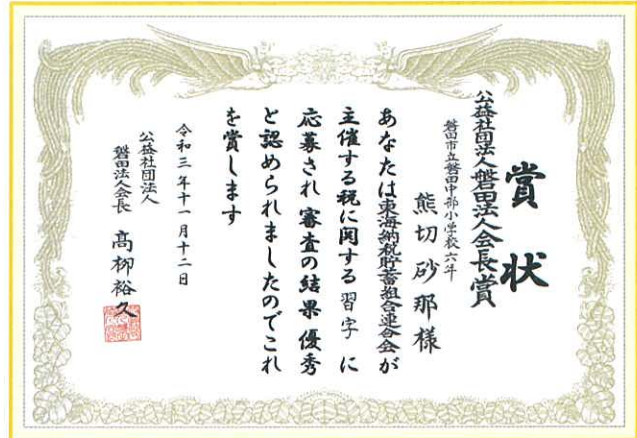 賞状
公益社団法人磐田法人会長賞
磐田市立磐田中部小学校六年
熊切砂那様
あなたは東海納税貯蓄組合連合会が
主催する税に関する習字に
応募され審査の結果優秀
と認められましたのでこれ
を賞します
令和三年十一月十二日
公益社団法人
磐田法人会長 高柳裕久